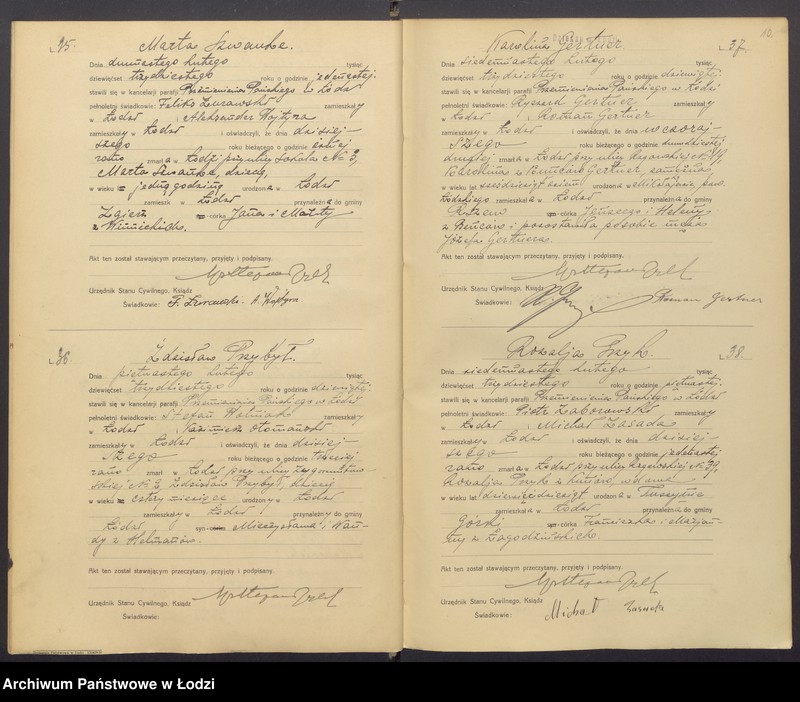 35. Marta Szwanke.
Dnia dwunastego lutego tysiąc
dziewięćset trzydziestego roku o godzinie jedenastej
stawili się w kancelarji parafji Przemienienia Pańskiego w Łodzi
pełnoletni świadkowie: Feliks Żurawski zamieszkały
w Łodzi, i Aleksander Wojtyra
zamieszkały w Łodzi i oświadczyli, że dnia dzisiej-
szego roku bieżącego o godzinie ósmej
rano zmarła w Łodzi przy ulicy Sokola № 3,
Marta Szwanke, dziecię,
w wieku jedną godzinę urodzona w Łodzi
zamieszk w Łodzi przynależna do gminy
córka Jana i Marty
z
Akt ten został stawającym przeczytany, przyjęty i podpisany.
Urzędnik Stanu Cywilnego, Ksiądz
Świadkowie: F. Żurawski. A. Wojtyra
36. Zdzisław Przybył.
Dnia piętnastego lutego tysiąc
dziewięćset trzydziestego roku o godzinie dziewiątej
stawili się w kancelarji parafji Przemienienia Pańskiego w Łodzi
pełnoletni świadkowie: Stefan zamieszkały
w Łodzi, Kazimierz
zamieszkały w Łodzi i oświadczyli, że dnia dzisiej-
szego roku bieżącego o godzinie trzeciej
rano zmarł w Łodzi przy ulicy Zygmuntow-
skiej № 2, Zdzisław Przybył, dziecię
w wieku cztry miesiące urodzony w Łodzi
zamieszkały w Łodzi przynależny do gminy
Łódź syn Mieczysława i Wan-
dy z
Akt ten został stawającym przeczytany, przyjęty i podpisany.
Urzędnik Stanu Cywilnego, Ksiądz
Świadkowie:
10.
Karolina Gertner 37.
Dnia siedemnastego lutego tysiąc
dziewięćset trzydziestego roku o godzinie dziewiątej
stawili się w kancelarji parafji Przemienienia Pańskiego w Łodzi
pełnoletni świadkowie: Ryszard Gertner zamieszkały
w Łodzi, i Roman Gertner
zamieszkały w Łodzi i oświadczyli, że dnia wczoraj-
szego roku bieżącego o godzinie dwudziestej
drugiej zmarła w Łodzi przy ulicy
Karolina z Gertner, zamężna
w wieku lat sześćdziesiąt siedem urodzona w Mikołajewie, pow.
Łódzkiego zamieszkała w Łodzi przynależna do gminy
córka Ignacego i Heleny
z i pozostawiła po sobie męża
Józefa Gertnera.
Akt ten został stawającym przeczytany, przyjęty i podpisany.
Urzędnik Stanu Cywilnego, Ksiądz
Świadkowie: Roman Gertner
Rozalja Gzyk. 38.
Dnia siedemnastego lutego tysiąc
dziewięćset trzydziestego roku o godzinie piętnastej
stawili się w kancelarji parafji Przemienienia Pańskiego w Łodzi
pełnoletni świadkowie: Piotr Zaborowski, zamieszkały
w Łodzi, i Michał Zasada
zamieszkały w Łodzi i oświadczyli, że dnia dzisiej-
szego roku bieżącego o godzinie jedenastej
rano zmarła w Łodzi przy ulicy Rzgowskiej № 39,
Rozalja Gzyk z wdowa
w wieku lat dziewięćdziesiąt urodzona w Tuszynie
zamieszkała w Łodzi przynależna do gminy
Górki córka Franciszka i Marjan-
ny z Zagodzińskich.
Akt ten został stawającym przeczytany, przyjęty i podpisany.
Urzędnik Stanu Cywilnego, Ksiądz
Świadkowie: Michał Zasada
Archiwum Państwowe w Łodzi